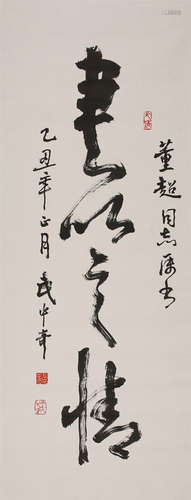 董超同志属书
書以言情
乙丑年正月 武中奇